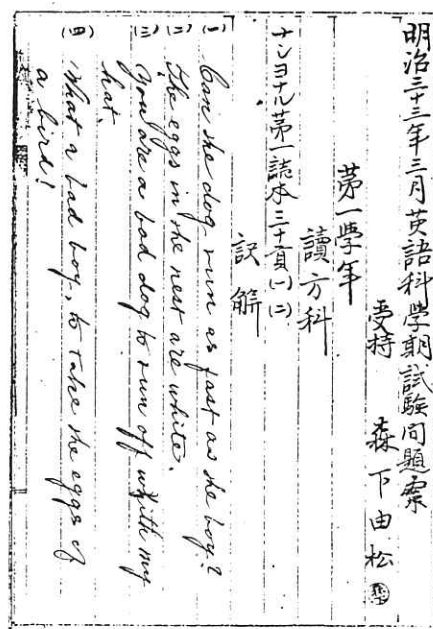 明治二十三年三月英語科學期試驗問題案
受持 森下由松
第一學年
讀方科
ナショナル第一読本三十頁(一)(二)
訳解
(一) Can the dog run as fast as the boy?
(二) The eggs in the nest are white.
(三) You are a bad dog to run off whith my
hat.
(四) What a bad boy, to take the eggs of
a bird!